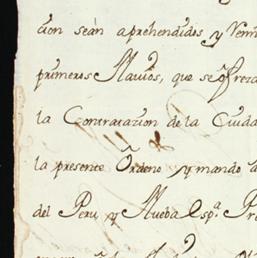 cion seàn aprehendidos y Remi
primeros Navios, que se ofreza
la Contratazion de la Ciuda
la presente Ordeno y mando a
del Peru y Nueba Esp.ª Pre